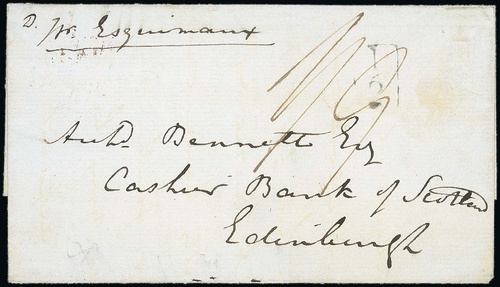 D. pr. Esquimaux
Archd Bennett Esq
Cashier Bank of Scotland
Edinburgh